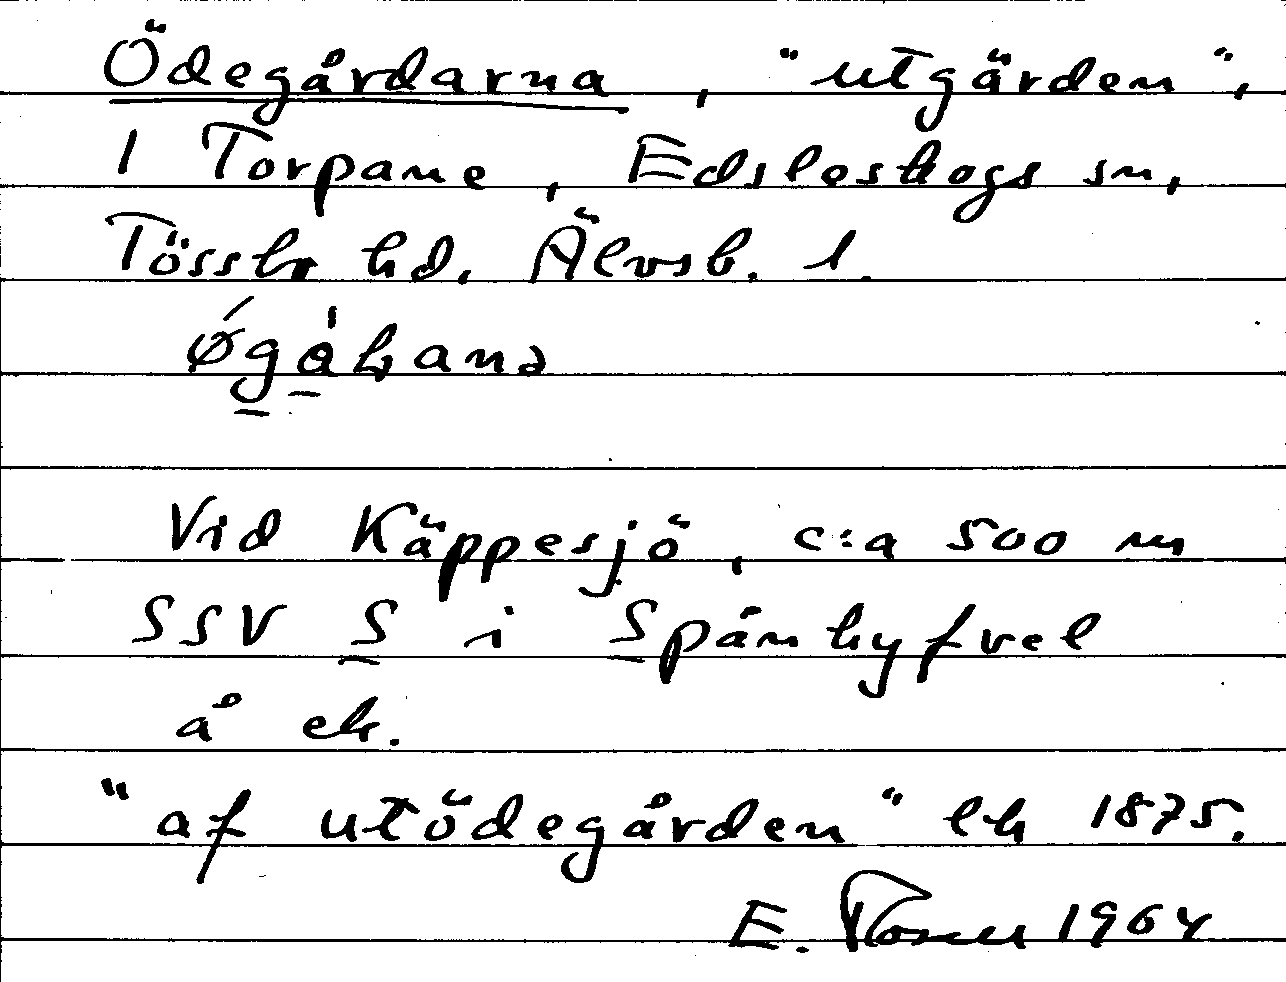 Ödegårdarna, "utgärden",
1 Torpane, Edsleskogs sn,
Tössbr hd, Älvsb. l.
Vid Käppesjö, c:a 500 m
SSV S i Spånhyfvel
å ek.
"af utödegården" lh 1875.
E. 1964